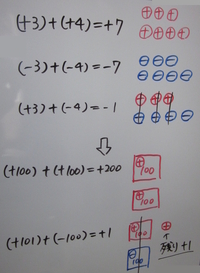 (+3)+(+4)=+7
⊕⊕⊕
⊕⊕⊕⊕
(-3)+(-4)=-7
⊖⊖⊖
⊖⊖⊖⊖
(+3)+(-4)=-1
⊕⊕⊕
⊖⊖⊖⊖
⇩
(+100)+(+100)=+200
⊕100
⊕100
(+101)+(-100)=+1
⊕100 ⊕
⊖100 ↑
残り+1